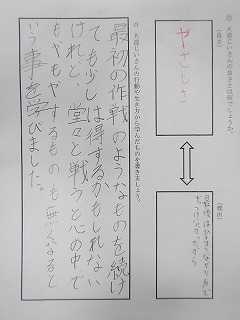 ① 大造じいさんの良さとは何でしょうか。
（良さ）
やさしさ
（理由）
最後はひきょうなやり方で
② 大造じいさんの行動や生き方から学んだものを書きましょう。
最初の作戦のようなものを続け
ても少しは得するかもしれない
けれど、堂々と戦うと心の中で
もやもやするものも無くなると
いう事を学びました。